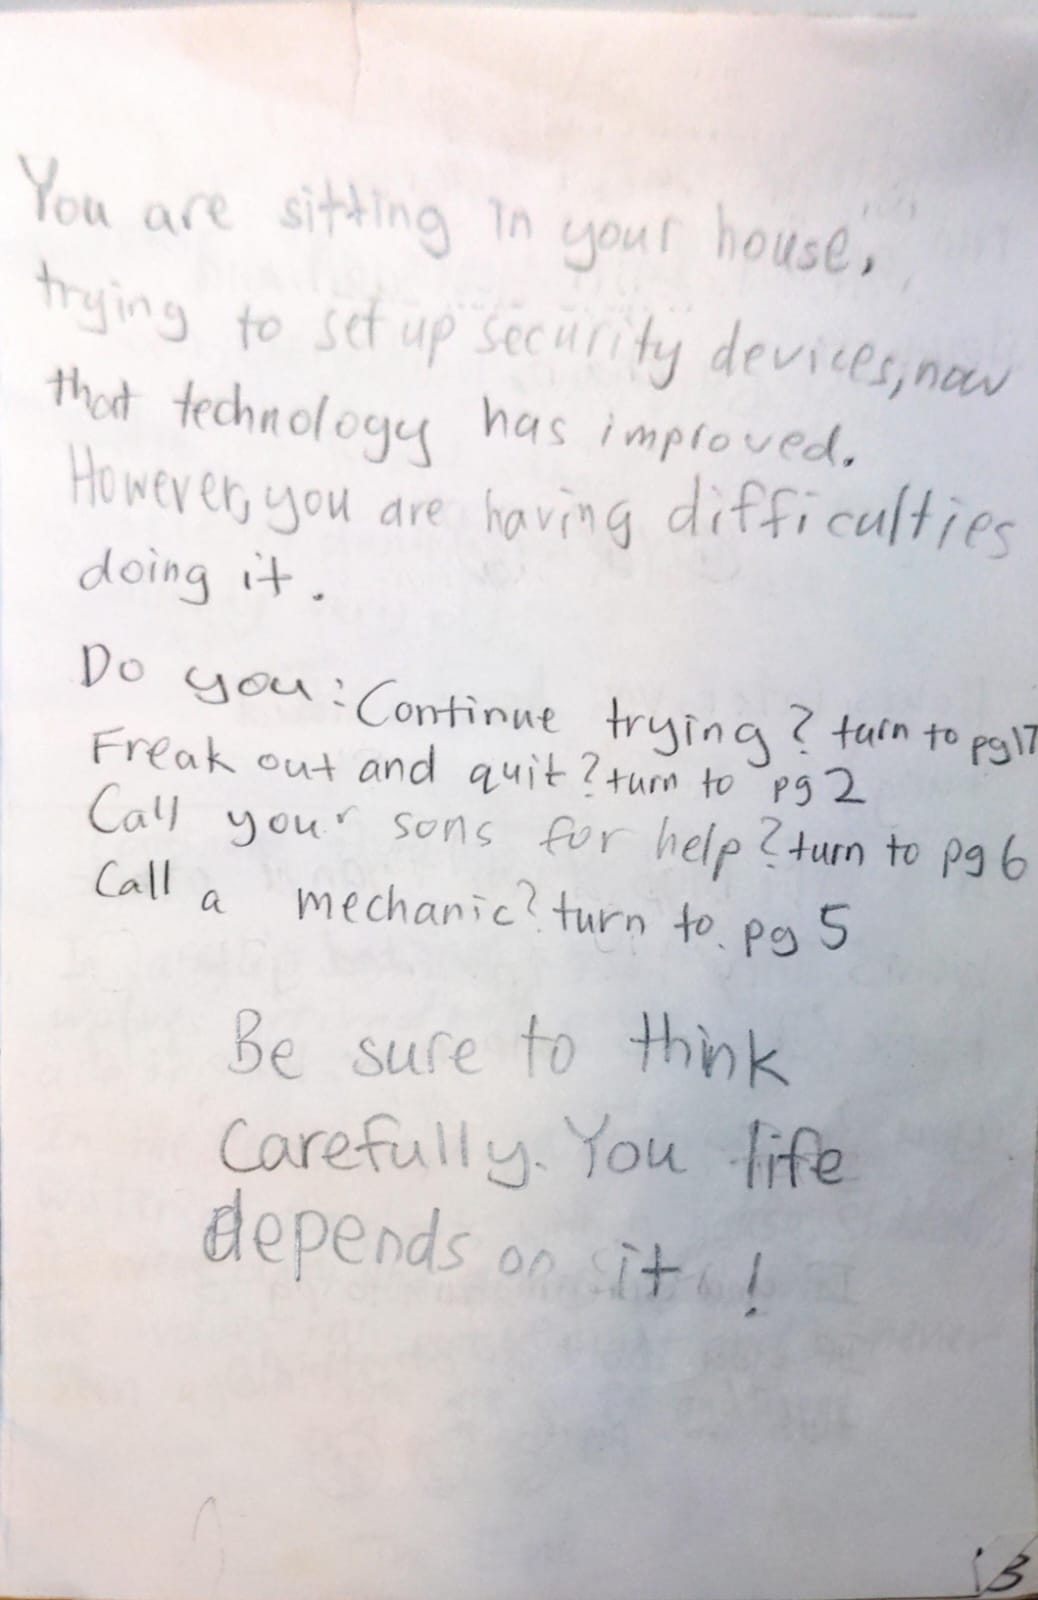 You are sitting in your house,
trying to set up security devices, now
that technology has improved.
However, you are having difficulties
doing it.
Do you: Continue trying? turn to pg 17
Freak out and quit? turn to pg 2
Call your sons for help? turn to pg 6
Call a mechanic? turn to pg 5
Be sure to think
Carefully. You life
depends on it!
3